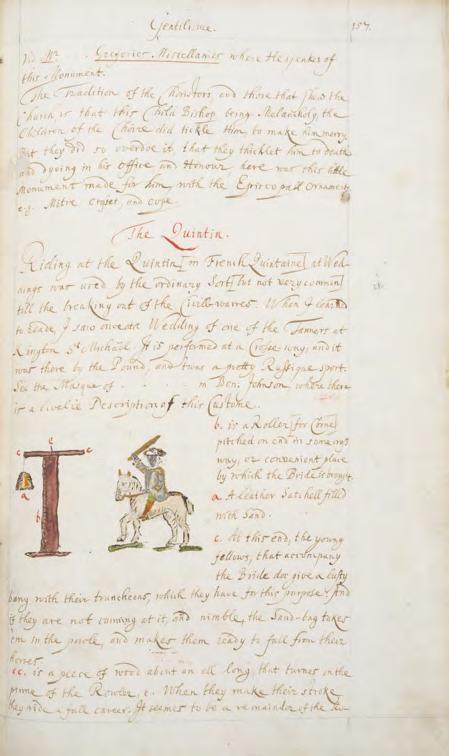 Gentilisme. 157.
Vid. Mr. Gregories Miscellanies where He speakes of
this Monument.
The Tradition of the Choristers, and those that shew the
Church is that this Child Bishop being Melancholy, the
Children of the Choire did tickle Him, to make him merry,
But they did so overdoe it, that they tickled him to death
and dyeing in his Office and Honour, here was this little
Monument made for him, with the Episcopall Ornaments
e.g. Mitre Crosier, and Cope.
The Quintin.
Riding at the Quintin [in French Quintaine] at Wed-
dings was used by the ordinary Sort [but not very common]
till the breaking out of the Civill-warres. When I learnd
to reade, I saw one at a Wedding of one of the Farmers at
Kington St Michael. It is performed at a Crosse way, and it
was there by the Pound, and twas a pretty Rustique sport.
See the Masque of . . . . . in Ben: Johnson, where there
is a livelie Description of this Custome.
b. is a Roller [for Corne]
pitched on end in some cross
way, or convenient place
by which the Bride is brought.
a. A leather Satchell filled
with Sand.
c. At this end, the young
fellows, that accompany
the Bride doe give a lusty
bang with their truncheons, which they have for this purpose. And
if they are not cuning at it, and nimble, the Sand-bag takes
'em in the powle, and makes them ready to fall from their
horses.
cc. is a peece of wood about an ell long, that turnes on the
pinne of the Rowler, e. When they make their stroke
they ride a full career. It seemes to be a remainder of the
c e c
a
b